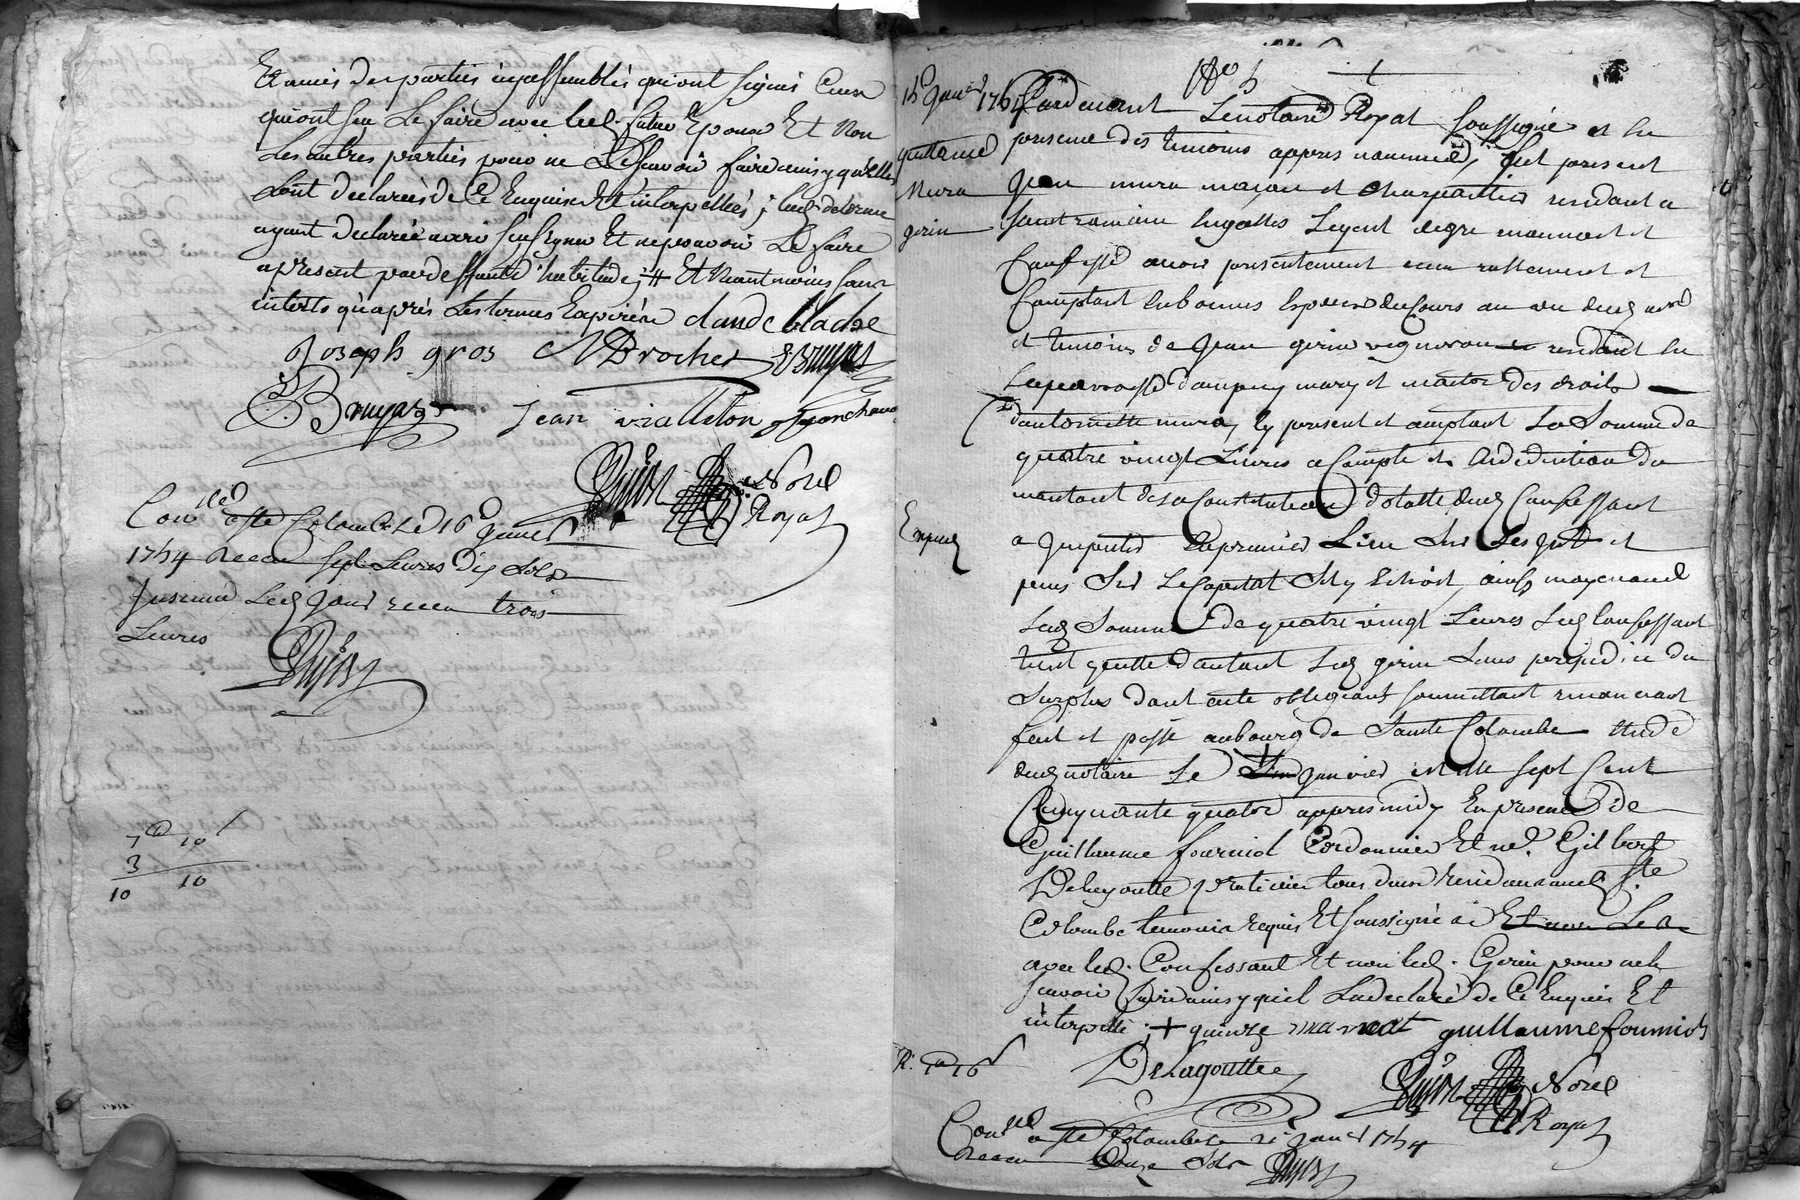 Et amis des parties icy assemblés qui ont signés Ceux
qui ont sçu Le faire avec led. futur Epoux Et Non
Les autres parties pour ne Le sçavoir faire ainsy qu'elles
L'ont declarées de Ce Enquises Et interpellées ;
ayant declarée avoir sçu signer Et ne pouvoir Le faire
a present par deffaute d'habitude ; # Et Neantmoins sans
interets qu'après Les termes Expirés claude blache
Joseph gros Brochet Bruyas
Bruyas jean vialleton
Guion Nore Royal
Conllé a Ste Colombe Le 16e janer
1754 Receu sept Livres dix sols
Insinué Led Jour receu trois
Livres
Guion
7 10
3
10 10
15e Janer 1754
quittance
Mura
girin
Pardevant Le notaire Royal soussigné et en
presence des temoins appres nommés, fut present
Jean mura maçon et charpantier residant a
saint romain en galles Lequel de gré
Confesse avoir presentement reellement et
Comptant en bonnes Especes du Cours au veu dud notre
et temoins de Jean girin vigneron residant en
La parroisse d'ampuy mary et maitre des droits
d'antoinette mura, Cy present et acceptant La somme de
quatre vingt Livres a Compte et en deduction du
montant de sa Constitution dotalle Confessant
Expedié
a En premier Lieu sur Les et
puis sur Le Capital sy echoit, ainsy moyenant
Lad somme de quatre vingt Livres Led Confessant
tient quitte d'autant Led girin sans prejudice du
surplus dont acte obligeant soumettant renonceant
fait et passé au bourg de Sainte Colombe etude
dud notaire Le + janvier mil sept Cent
Cinquante quatre appres midy En presence de
Guillaume fourniol Cordonnier Et me. Gilbert
Delagoutte praticien tous deux residans aud Ste
Colombe temoins requis Et soussignés
avec led. Confessant Et non led. Girin pour ne le
sçavoir faire ainsy qu'il La declaré de Ce Enquis Et
interpellé ; + quinze guillaume fourniol
Delagoutte Guion Nore Royal
Conllé a Ste Colombe Le janer 1754
Receu douze sols Guion